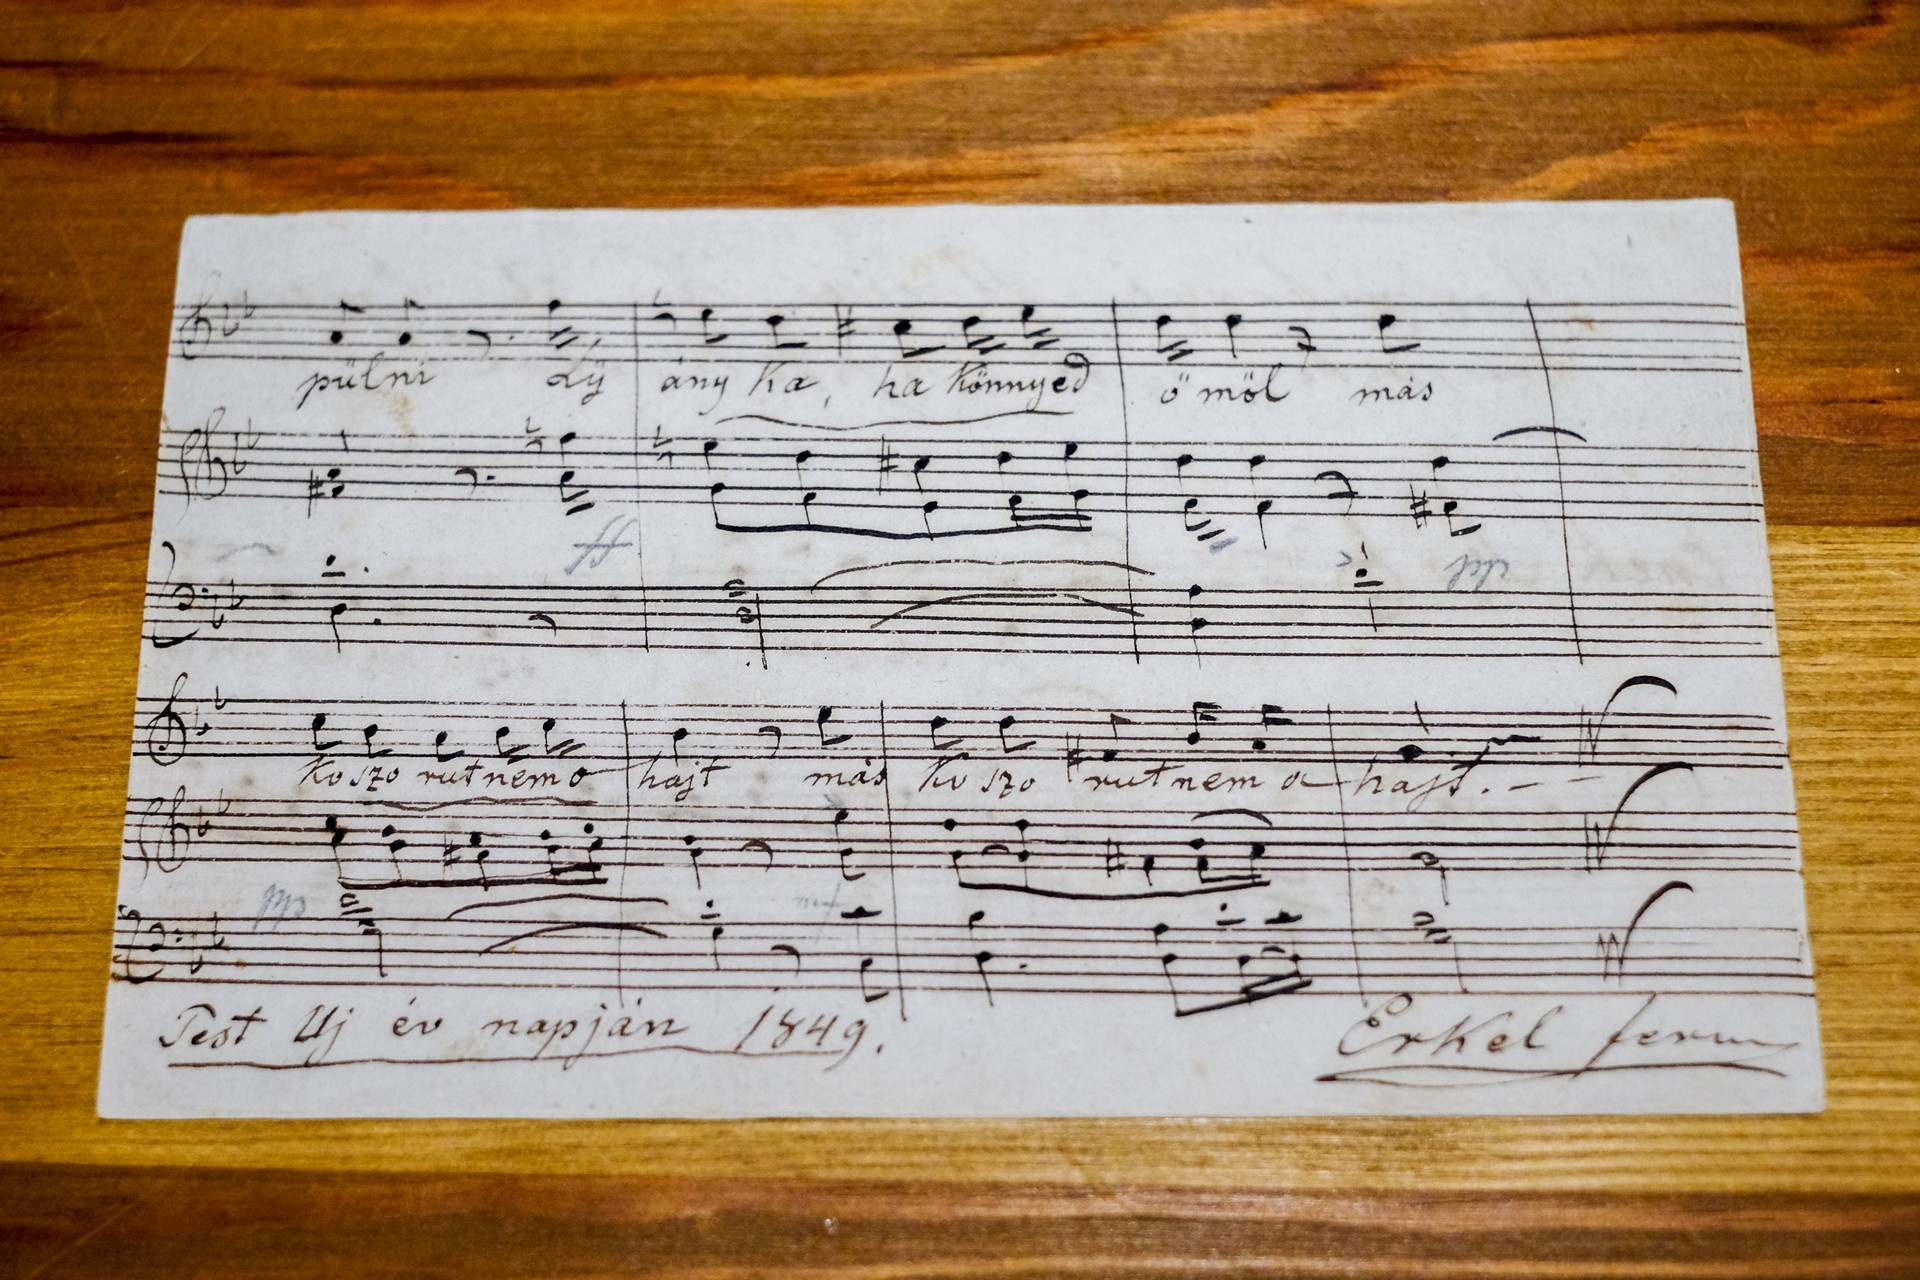 pülni Lÿ ány ka, ha könnyed ö möl más
ff
pp
ko szo rut nem o hajt más ko szo rut nem o hajt. –
pp mf
Pest Uj év napján 1849. Erkel